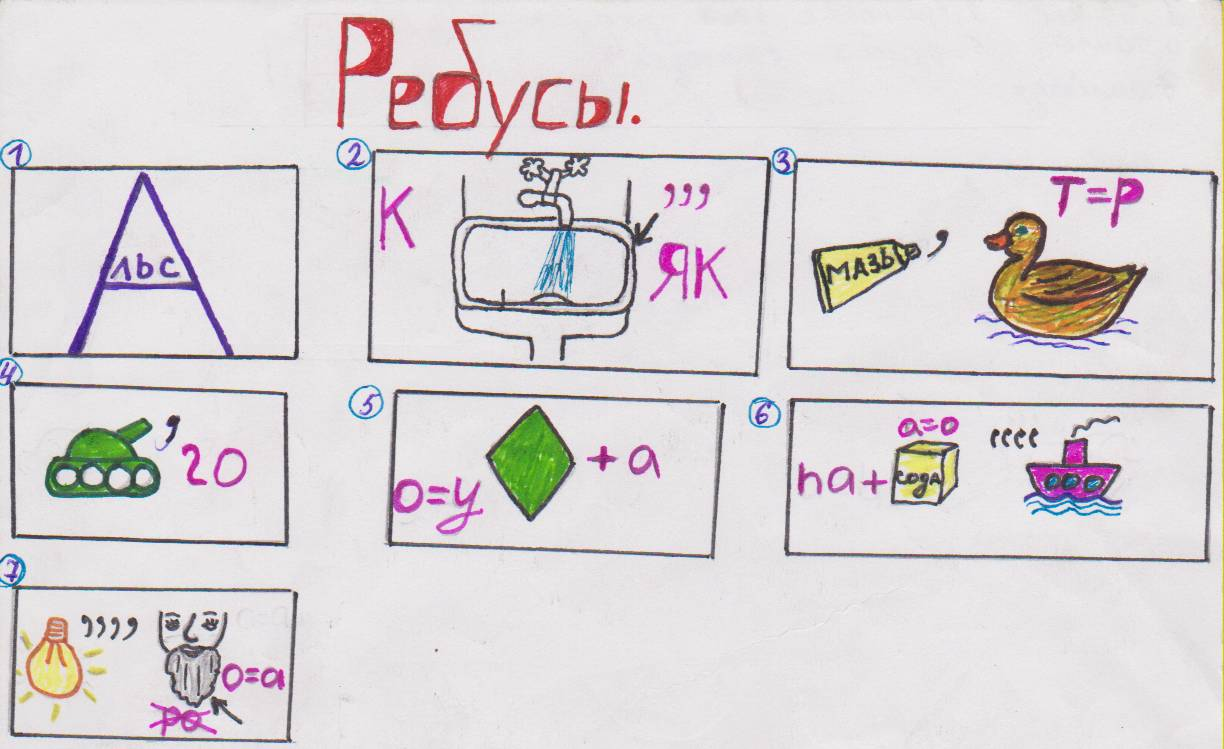 Ребусы.
1
льс
А
2
К
,,,
ЯК
3
Т=Р
МАЗЬ
,
4
,
20
5
о=у
+а
6
а=о
па+
СОДА
,,,,
7
,,,,
о=а
ро